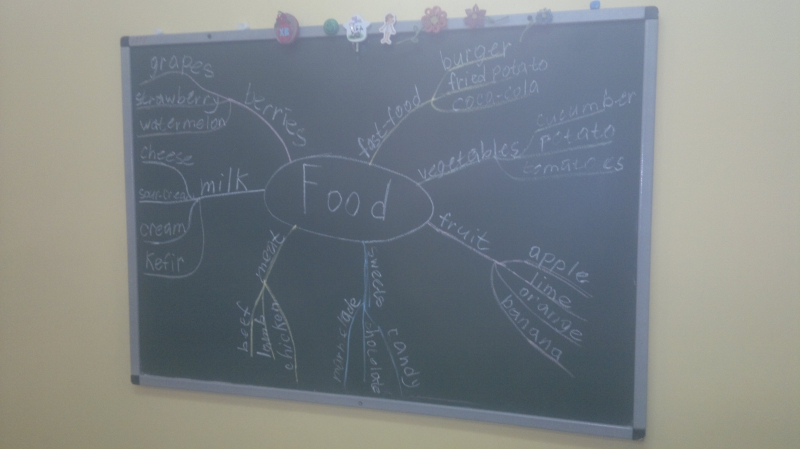 Food
berries
grapes
strawberry
watermelon
milk
cheese
sour-cream
cream
kefir
meat
beef
lamb
chicken
sweets
chocolate
candy
fruit
apple
lime
orange
banana
vegetables
cucumber
potato
fast-food
burger
fried potato
coca-cola